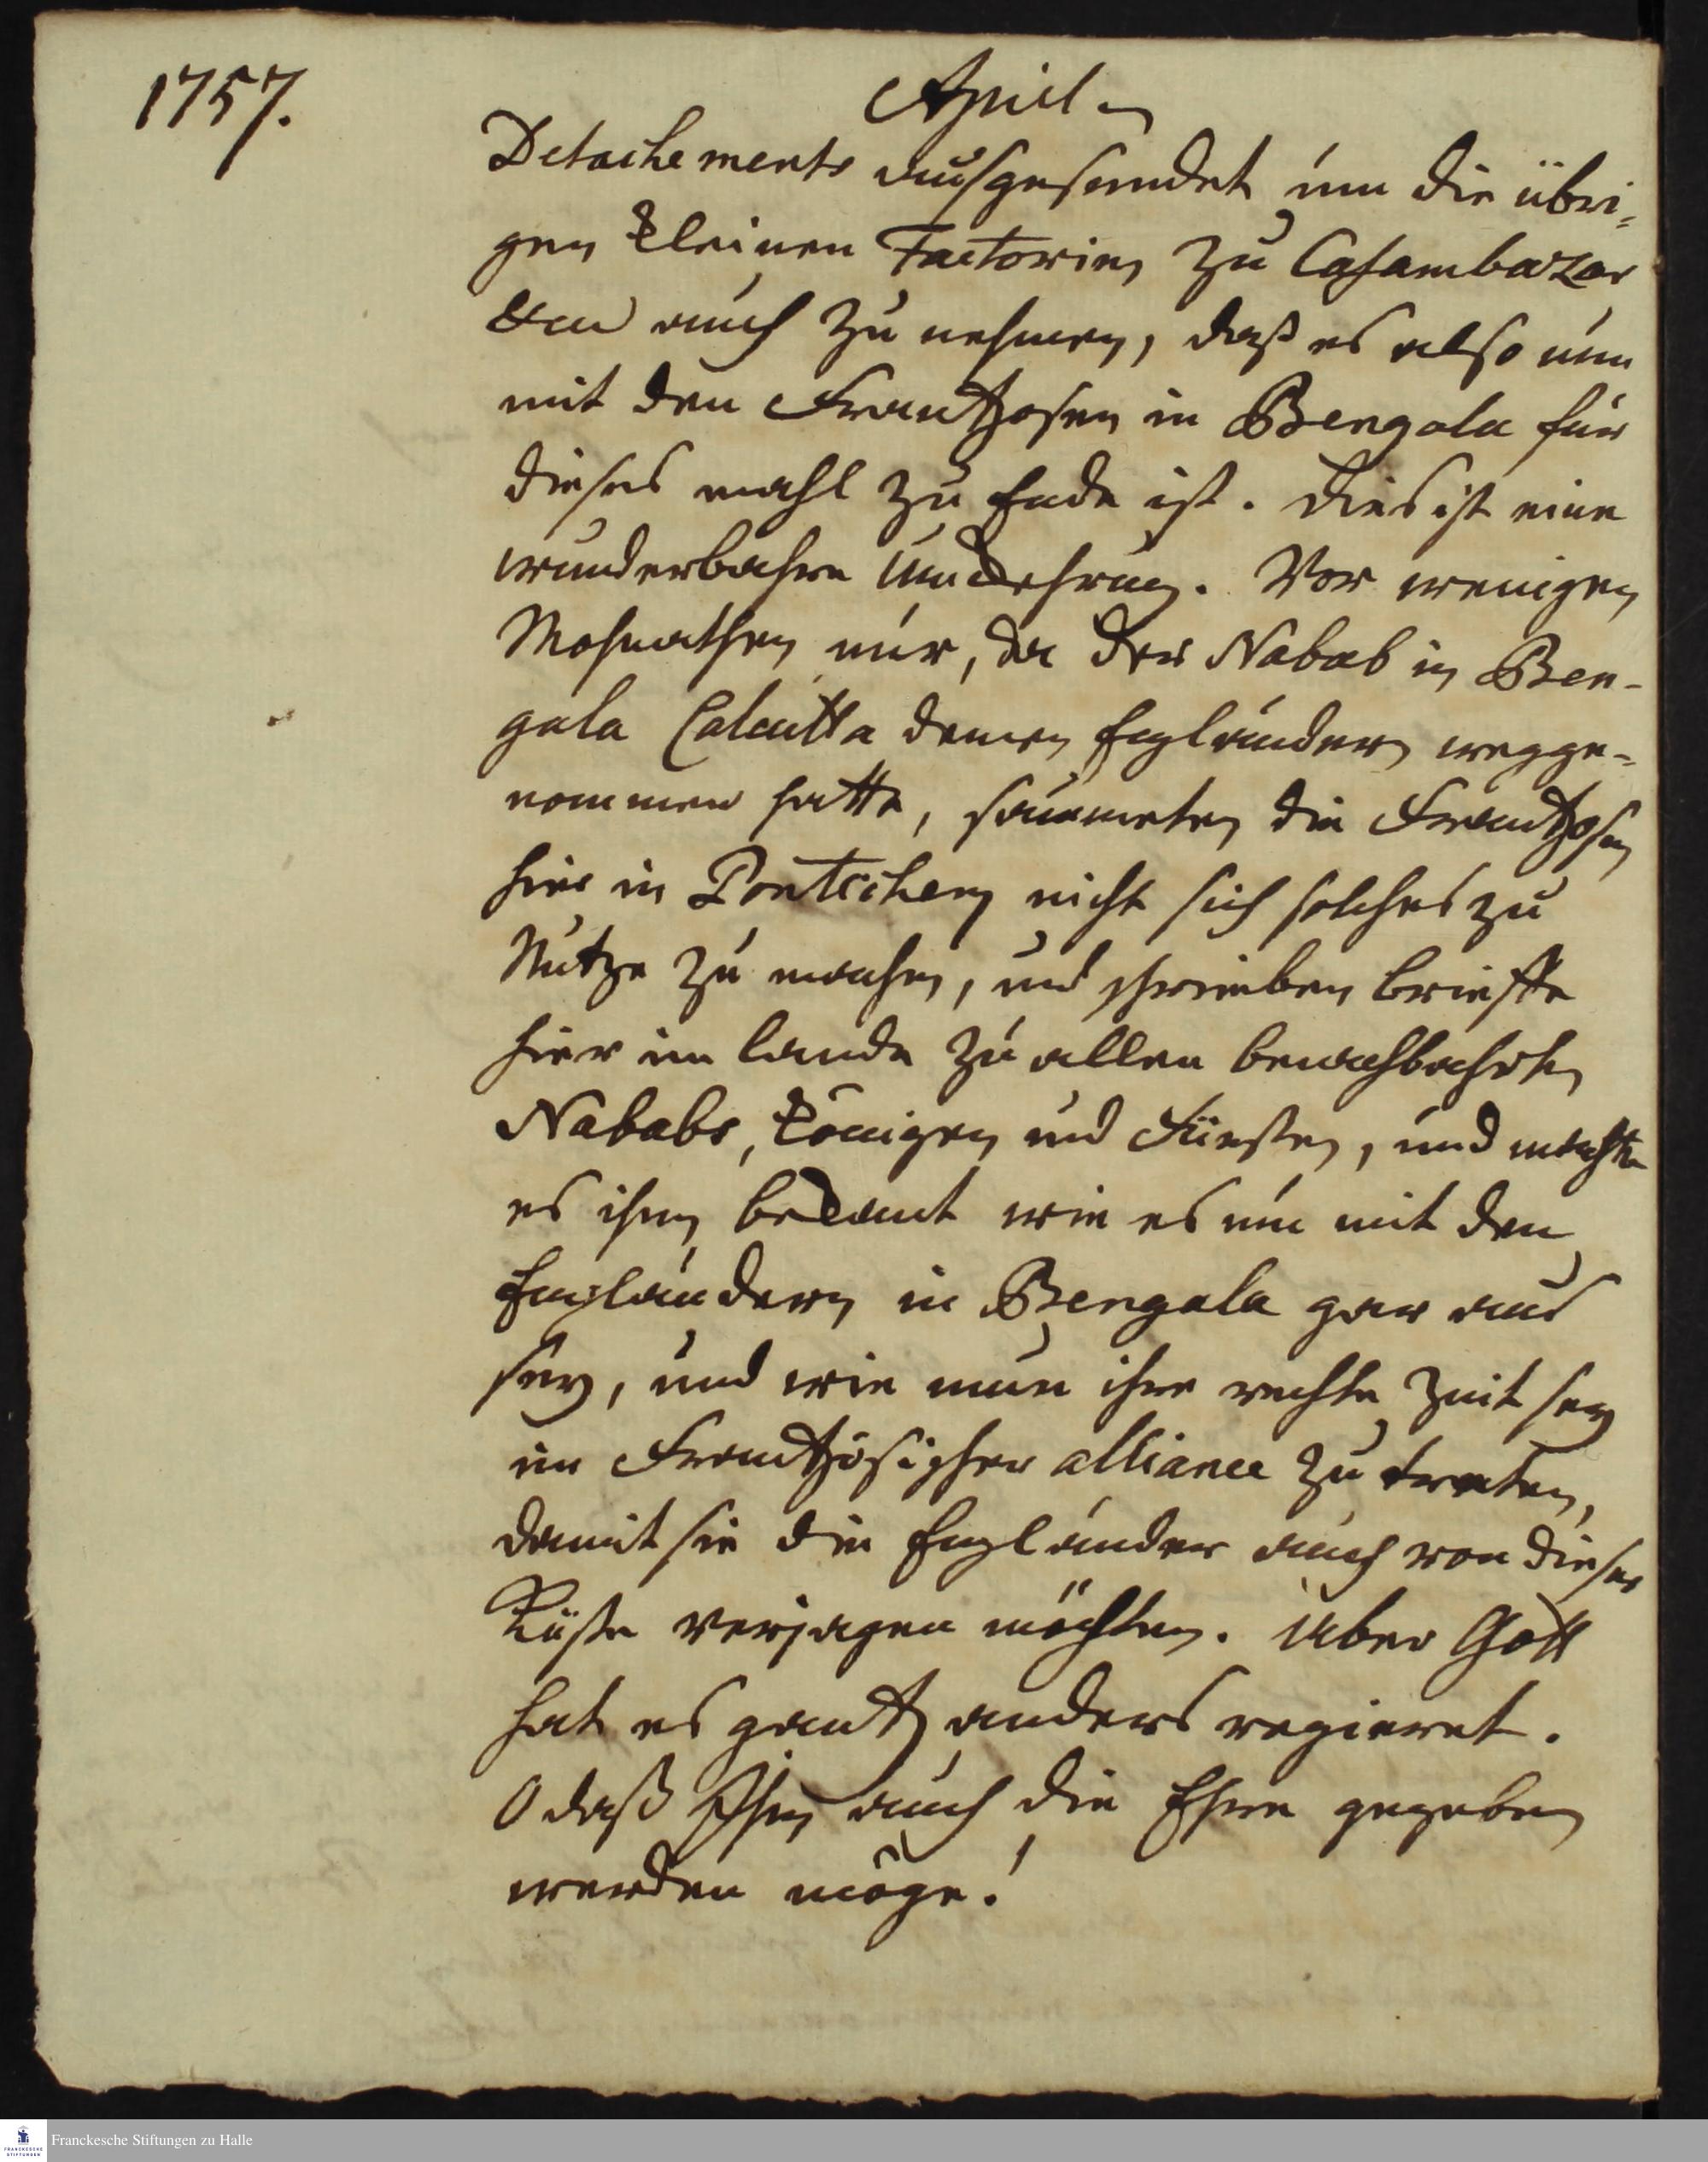 1757.
April
Detachements ausgesandt um die übri-
gen kleinen Factorien zu Casambazar
auch zu nehmen, daß es also nun
mit den Frantzosen in Bengala für
dieses mahl zu Ende ist. Dies ist eine
wunderbahre Umkehrung. Vor wenigen
Mohnathen nur, da der Nabab in Ben-
gala Calcutta denen Engländern wegge-
nommen hatte, säumeten die Frantzosen
hier in Pontichery nicht sich solches zu
Nutze zu machen, und schrieben brieffe
hier im Lande zu allen benachbahrten
Nababs, Königen und Fürsten, und machten
es ihnen bekant wie es nun mit den
Engländern in Bengala gar aus
sey, und wie nun ihre rechte Zeit sey
in Frantzösischer alliance zu tretten,
damit sie die Engländer auch von dieser
Küste verjagen möchten. Aber Gott
hat es gantz anders regieret.
O daß Ihm auch die Ehre gegeben
werden möge!
Franckesche Stiftungen zu Halle
FRANCKESCHE
STIFTUNGEN